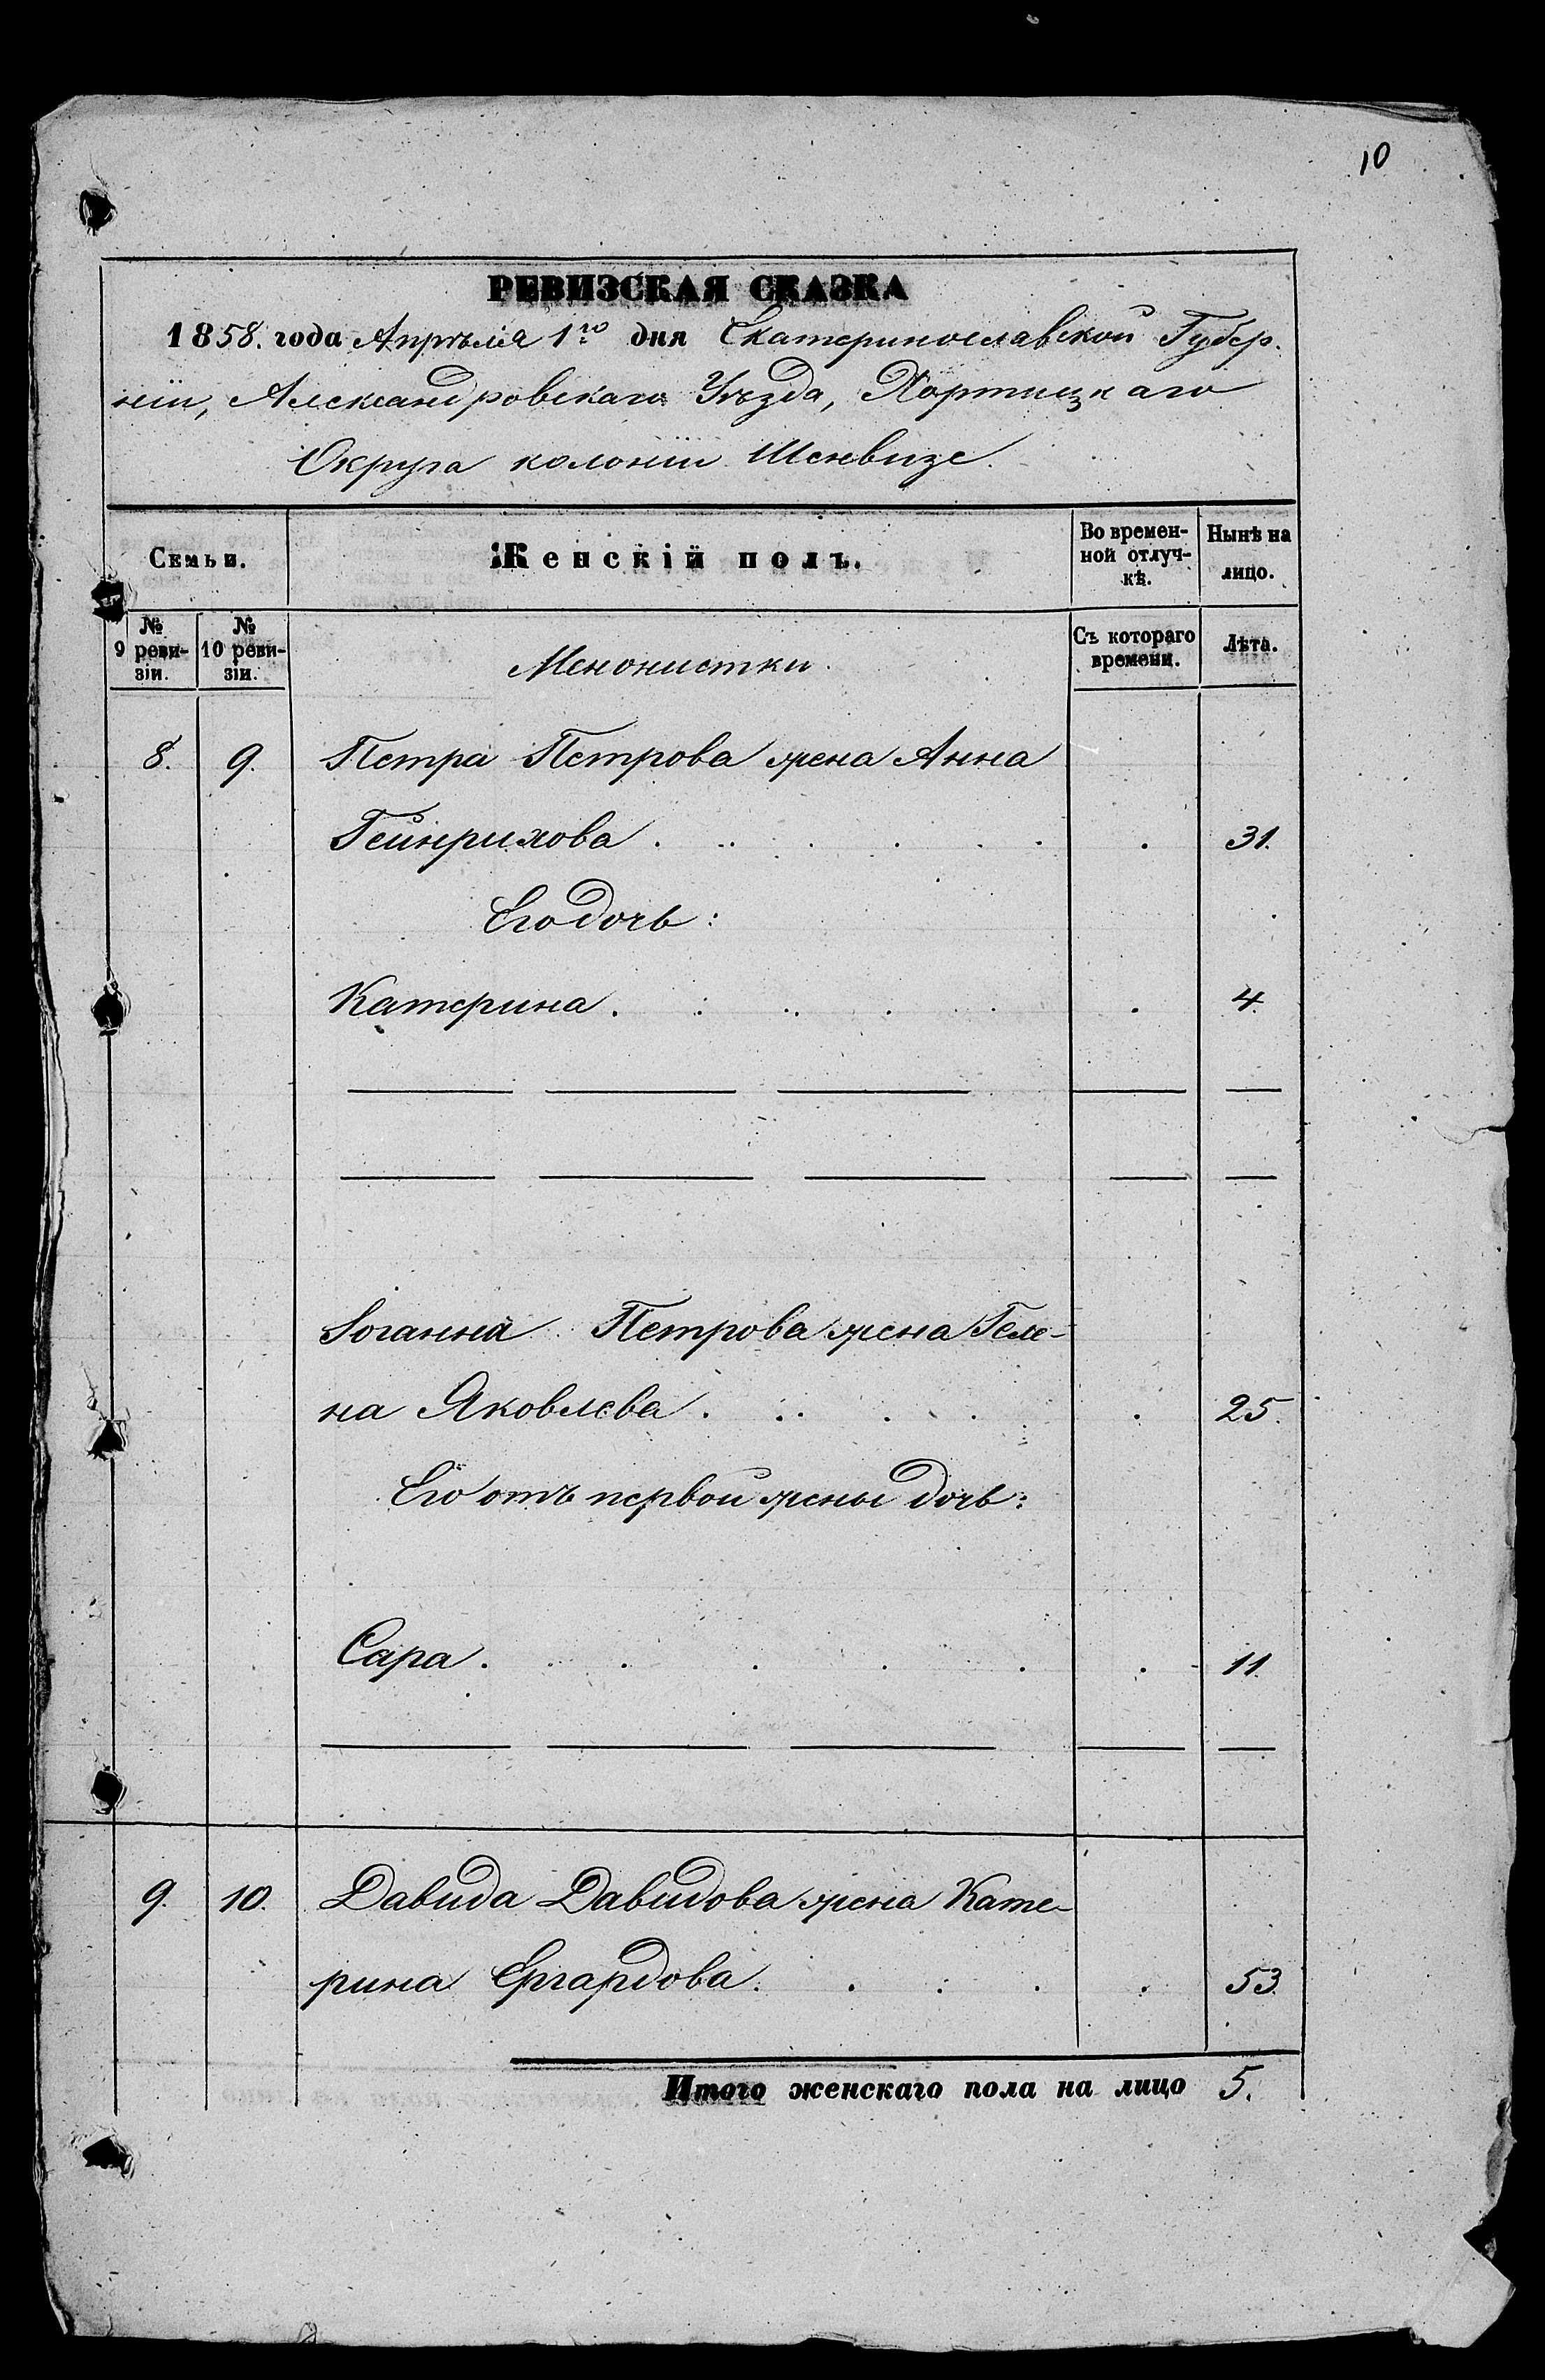 10
РЕВИЗСКАЯ СКАЗКА
1858. года Апрѣлія 1го дня Екатеринославской Губер.
ніи, Александровскаго Уѣзда, Хортицкаго
Округа колоніи Шенвизе.
Семьи.
Женскій полъ.
Во времен-
ной отлуч-
кѣ.
Нынѣ на
лицо.
№
9 реви-
зіи.
№
10 реви-
зіи.
Менонистки.
Съ котораго
времени.
Лѣта.
8. 9. Петра Петрова жена Анна
Гейнрихова . . . . . . . 31.
Его дочь:
Катерина . . . . . . 4.
Іоганна Петрова жена Геле-
на Яковлева . . . . . 25.
Его отъ первой жены дочь:
Сара . . . . . . . 11.
9. 10. Давида Давидова жена Кате-
рина Ергардова . . . . . 53.
Итого женскаго пола на лицо 5.